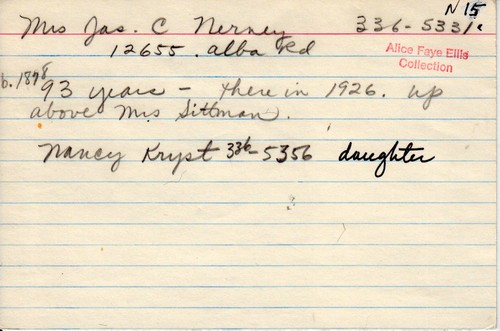 N 15
Mrs Jas. C Nerney 336-5331
12655. alba Rd
Alice Faye Ellis
Collection
b. 1898
93 years - there in 1926. up
above Mrs Sittman.
Nancy Kryst 336-5356 daughter